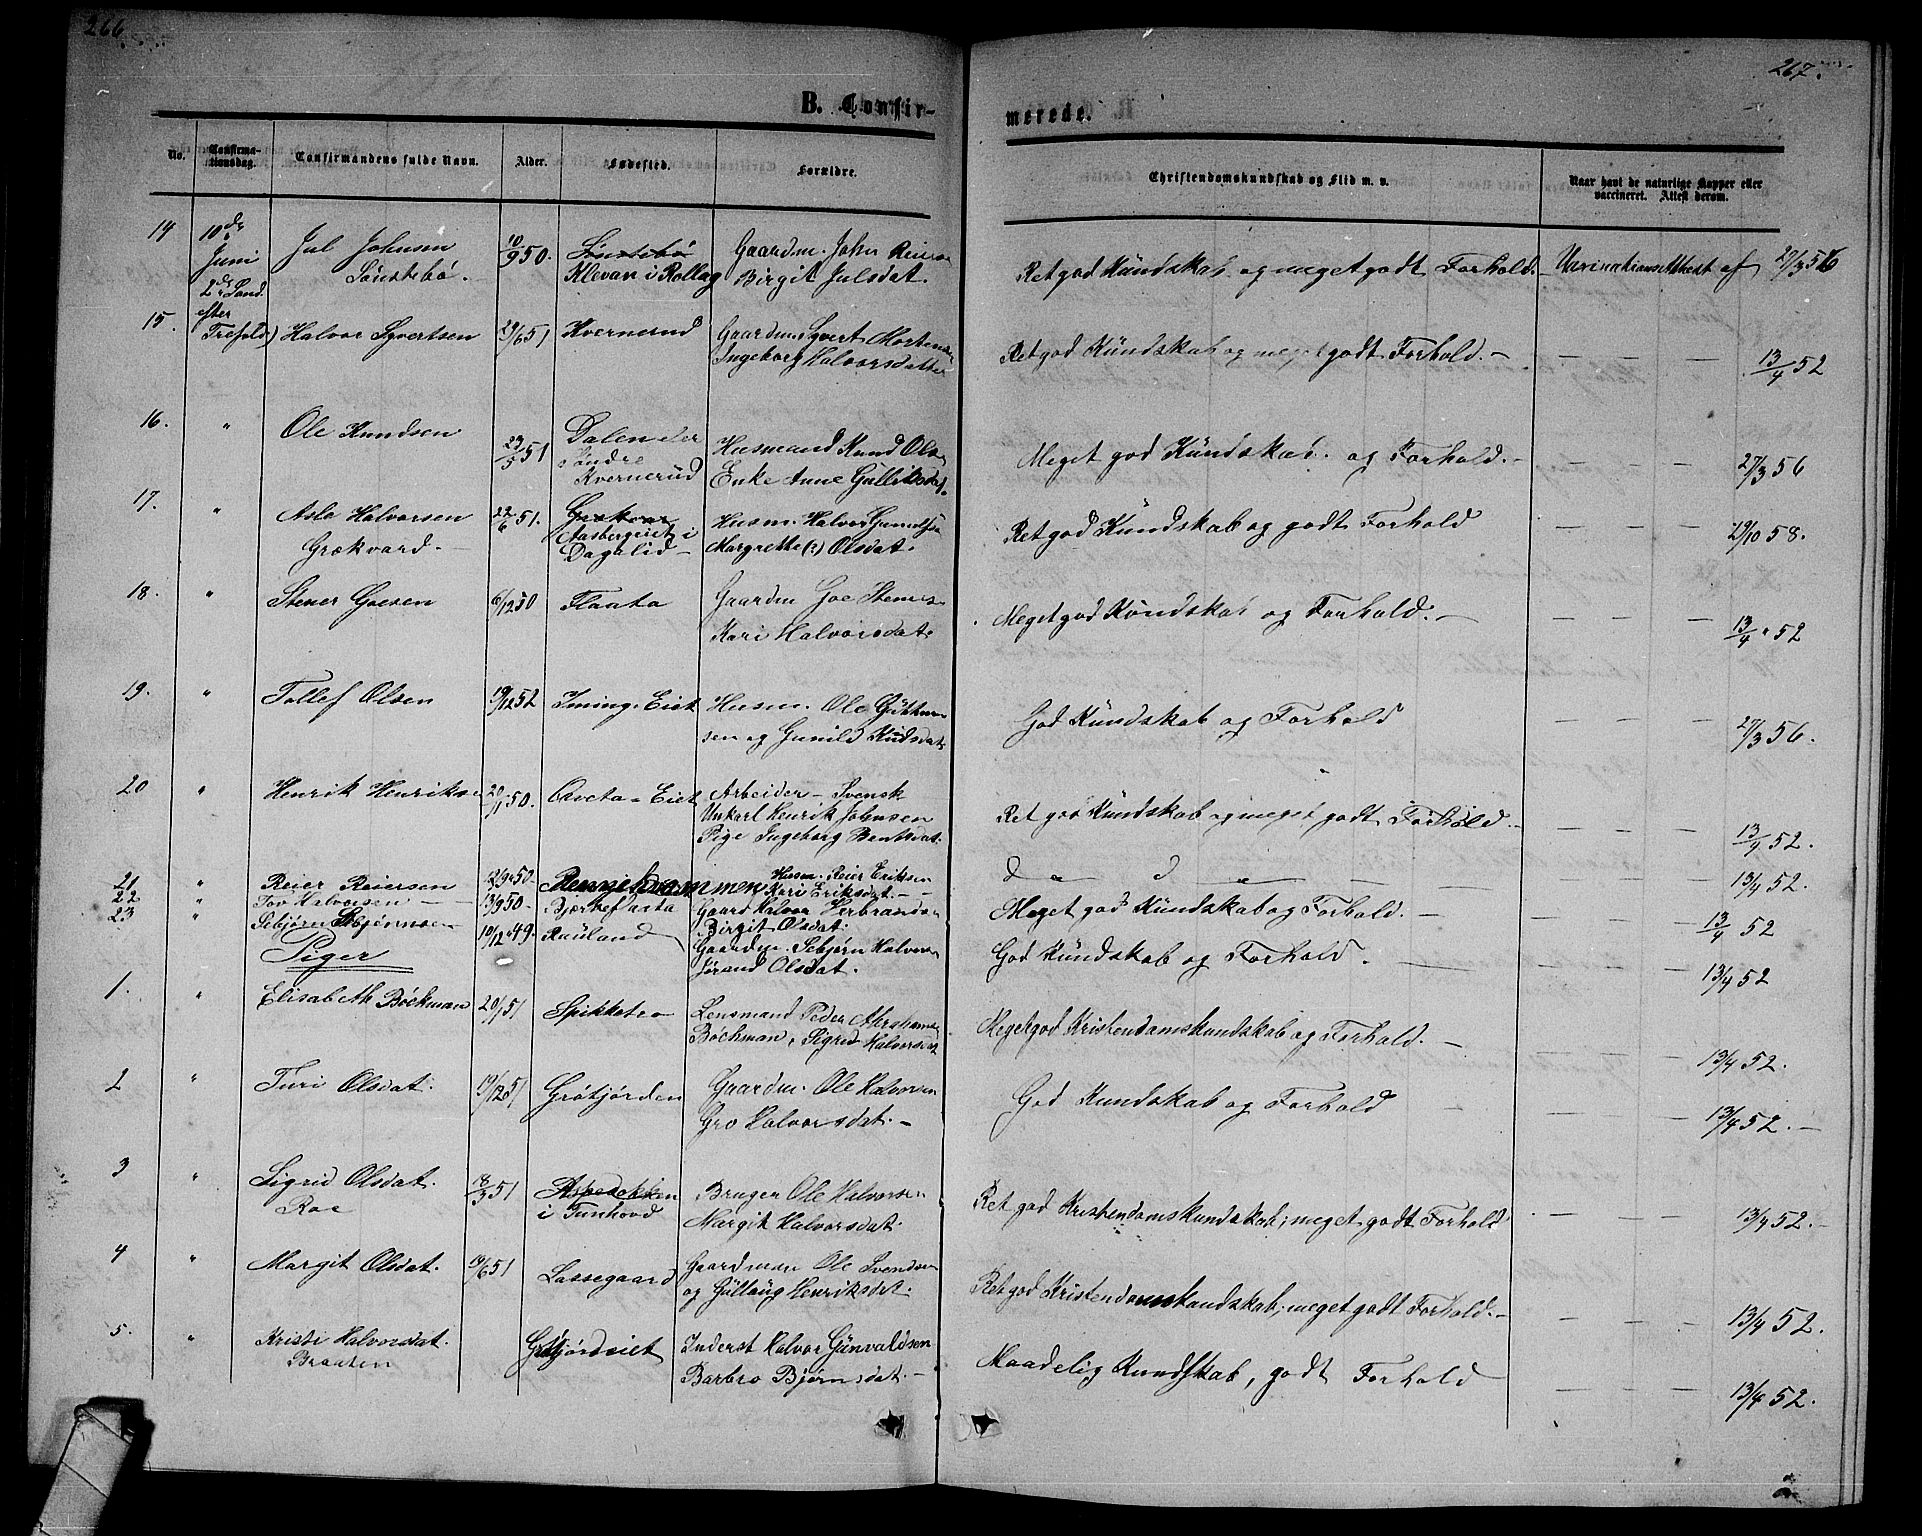 266
267
B. Confir-
merede.
No.
Confirma-
tionsdag.
Confirmandens fulde Navn.
Alder.
Fødested.
Forældre.
Christendomskundskab og Flid m. v.
Naar havt de naturlige Kopper eller
vaccineret. Attest derom.
14 10de Juni Jul Johnsen 10/9 50. Sønstebø Gaardm. John
Sønstebø. Klevan i Rollag Birgit Julsdat.
Ret god Kundskab og meget godt Forhold. - Vaccinationsattest af 29/3 56
2den Sønd.
efter
Trefold)
15. Halvor Syvertsen 29/6 51 Kvernerud Gaardm. Syvert Mortensen
Ingeborg Halvorsdatter
Ret god Kundskab og meget godt Forhold. - — — — 13/4 52
16. " Ole Knudsen 23/5 51 Dalen under Husmand Knud Ols.
Søndre Enke Anne Gulliksdat.
Kvernerud
Meget god Kundskab og Forhold. - — — — 27/3 56
17. " Asle Halvorsen 22/6 51. Husm. Halvor
Grækvard. - Aasbergeiet i Margrethe (?) Olsdat.
Dagalid -
Ret god Kundskab og godt Forhold — — — 29/10 58.
18. " Stener Goesen 6/12 50 Flaata Gaardm Goe Steners.
Kari Halvorsdat.
Meget god Kundskab og Forhold. - — — — 13/4 52
19. " Tollef Olsen 19/12 52 Iming-Eiet Husm. Ole
sen og Gunild Knudsdat.
God Kundskab og Forhold — — — 27/3 56.
20 " Henrik Henriksen 20/1 50. Eiet Arbeider - Svensk
Unkarl Henrik Johnsen
Pige Ingeborg Bentsdat.
Ret god Kundskab og meget godt Forhold. - — — — 13/4 52.
21 " Reier Reiersen 50. Husm. Reier Eriksen
Kari Eriksdat. -
d o d o — — — 13/4 52.
22 " Tov Halvorsen - 13/9 50. Bjerkeflaata Gaard Halvor Herbrandsen
Birgit Olsdat.
Meget god Kundskab og Forhold. - — — — 13/4 52
23 " Sebjørn Sebjørnsen 10/12 49. Rauland Gaardm. Sebjørn Halvorsen
Jørand Olsdat.
God Kundskab og Forhold. — — — 13/4 52
Piger
1. " Elisabeth Bøckman 20/1 51 Spikketeo Lensmand Peder Abrahamsen
Bøckman, Sigrid Halvorsdat
Meget god Kristendomskundskab og Forhold. - — — — 13/4 52.
2 " Turi Olsdat. 19/12 51 Grøtjørden Gaardm. Ole Halvorsen
Gro Halvorsdat. -
God Kundskab og Forhold — — — 13/4 52. -
3 " Sigrid Olsdat. 18/3 51 Bruger Ole Halvorsen
Roe i Tunhovd Margit Halvorsdat.
Ret god Kristendomskundskab; meget godt Forhold — — — 13/4 52. -
4 " Margit Olsdat. 19/6 51 Lassegaard Gaardman Ole Svendsen
og Gullaug Henriksdat.
Ret god Kristendomskundskab; meget godt Forhold. - — — — 13/4 52.
5. " Kristi Halvorsdat. Grøtjordeiet Inderst Halvor Gunvaldsen
Braaten Barbro Bjørnsdat. -
Maadelig Kundskab, godt Forhold — — — 13/4 52.